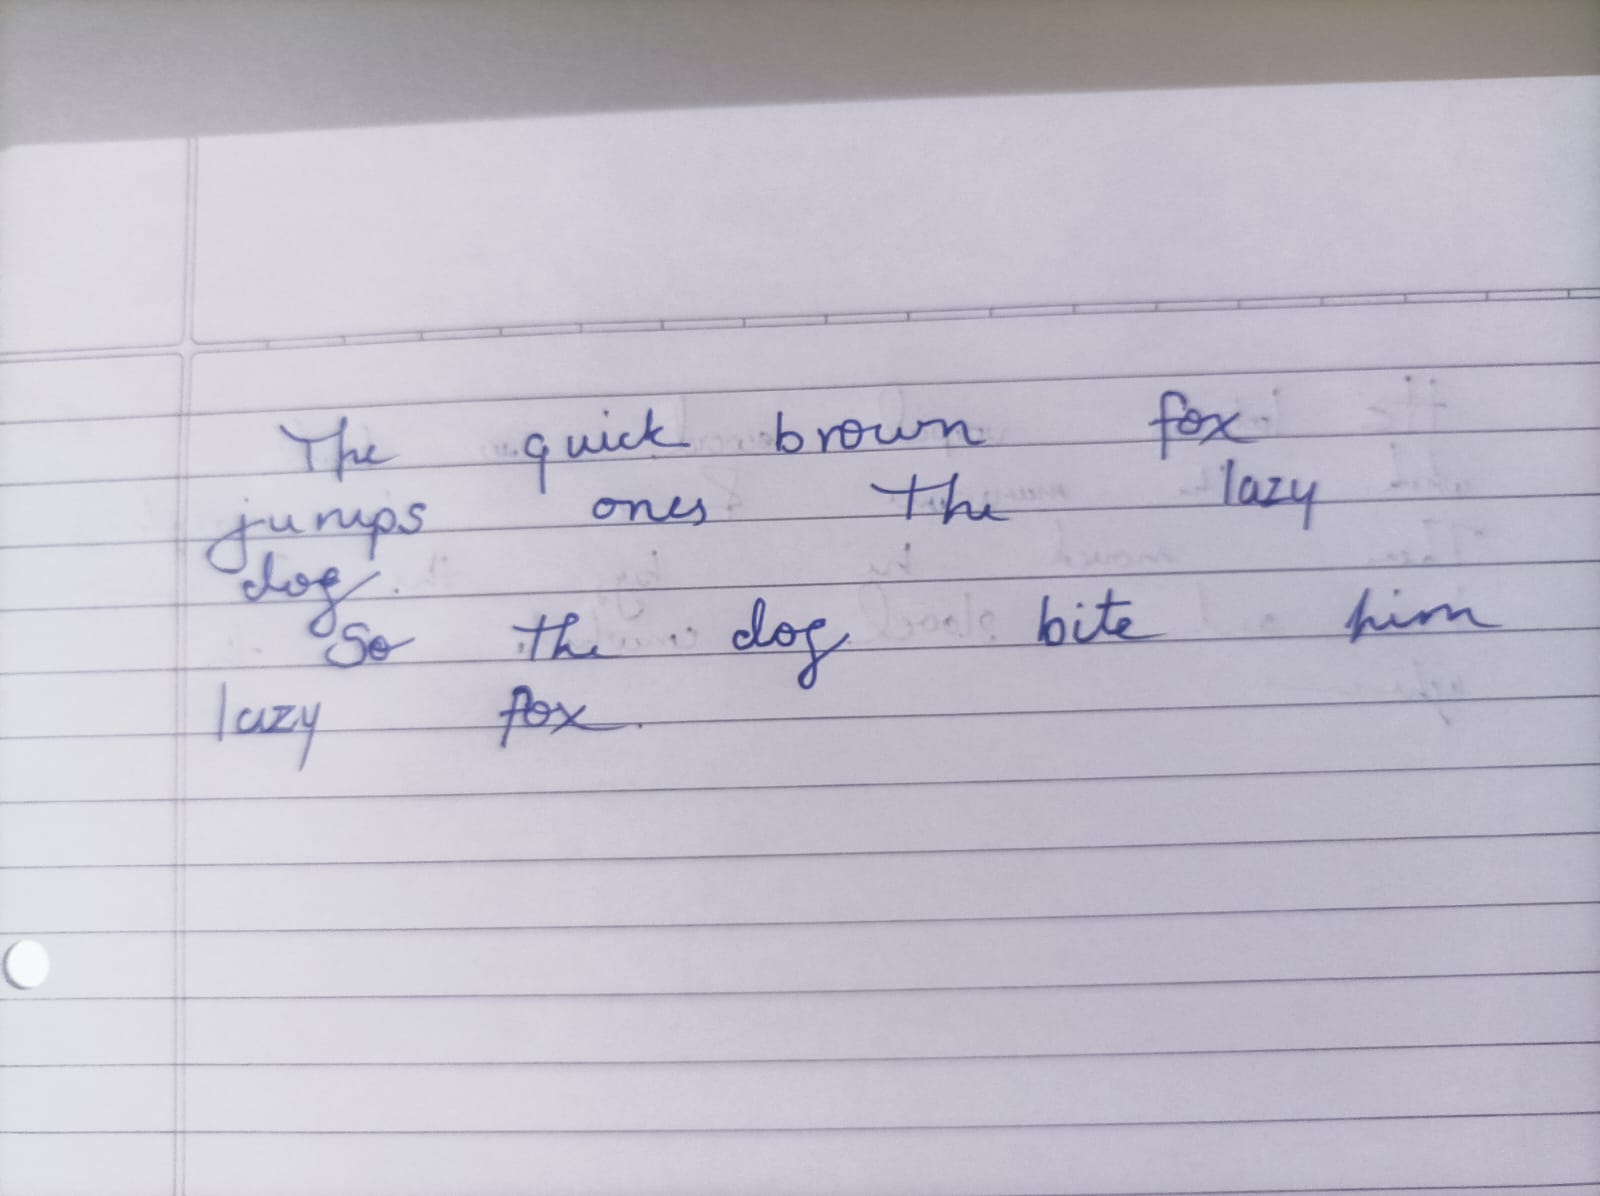 The quick brown fox
jumps ones the lazy
dog.
So the dog bite him
lazy fox.